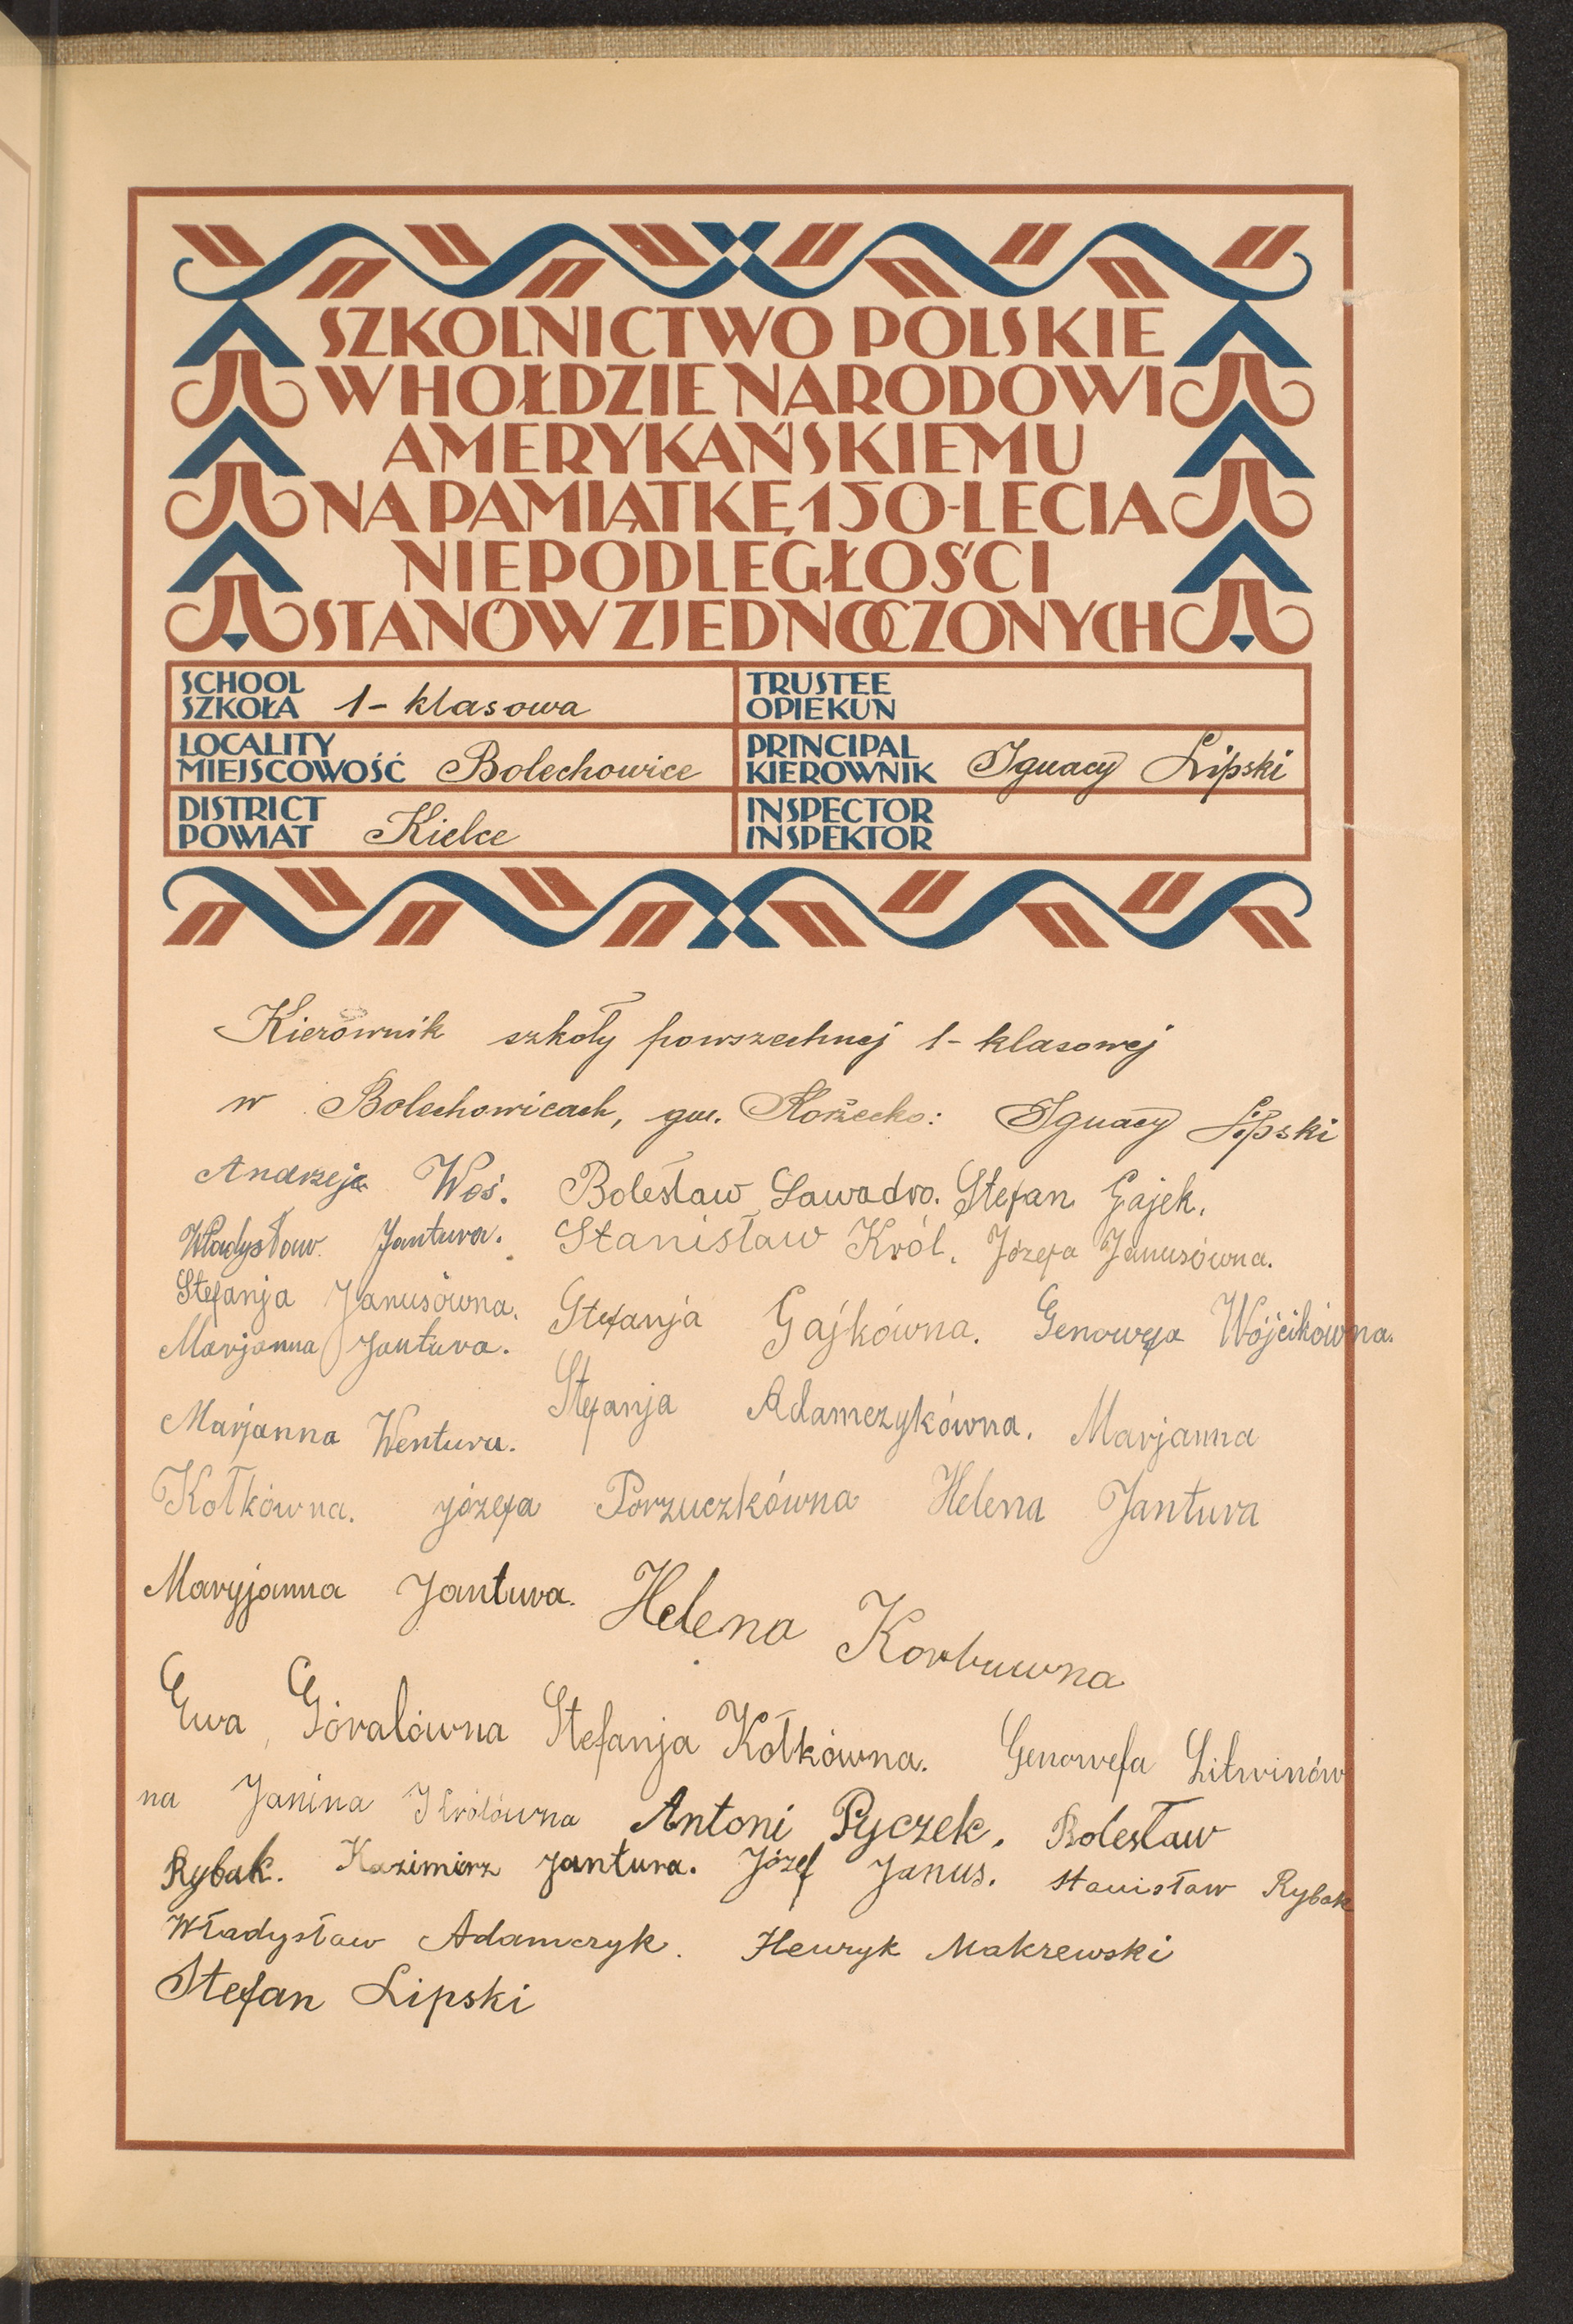 SZKOLNICTWO POLSKIE
W HOŁDZIE NARODOWI
AMERYKAŃSKIEMU
NA PAMIĄTKĘ 150-LECIA
NIEPODLEGŁOŚCI
STANÓW ZJEDNOCZONYCH
SCHOOL
SZKOŁA 1-klasowa
TRUSTEE
OPIEKUN
LOCALITY
MIEJSCOWOŚĆ Bolechowice
PRINCIPAL
KIEROWNIK Ignacy Lipski
DISTRICT
POWIAT Kielce
INSPECTOR
INSPEKTOR
Kierownik szkoły powszechnej 1-klasowej
w Bolechowicach, gm. Ignacy Lipski
Andrzej Woś. Bolesław Stefan Gajek.
Władysław Jantura. Stanisław Król. Józefa Janusówna.
Stefanja Janusówna. Stefanja Gajkówna. Genowefa Wójcikówna.
Marjanna Jantura.
Marjanna Wentura. Stefanja Adamczykówna. Marjanna
Kołkówna. Józefa Porzuczkówna Helena Jantura
Maryjanna Jantura. Helena Korbuwna
Ewa Góralówna Stefanja Kołkówna. Genowefa Litwinów
na Janina Królówna Antoni Pyczek. Bolesław
Rybak. Kazimierz Jantura. Józef Janus. Stanisław Rybak
Władysław Adamczyk. Henryk Makrewski
Stefan Lipski